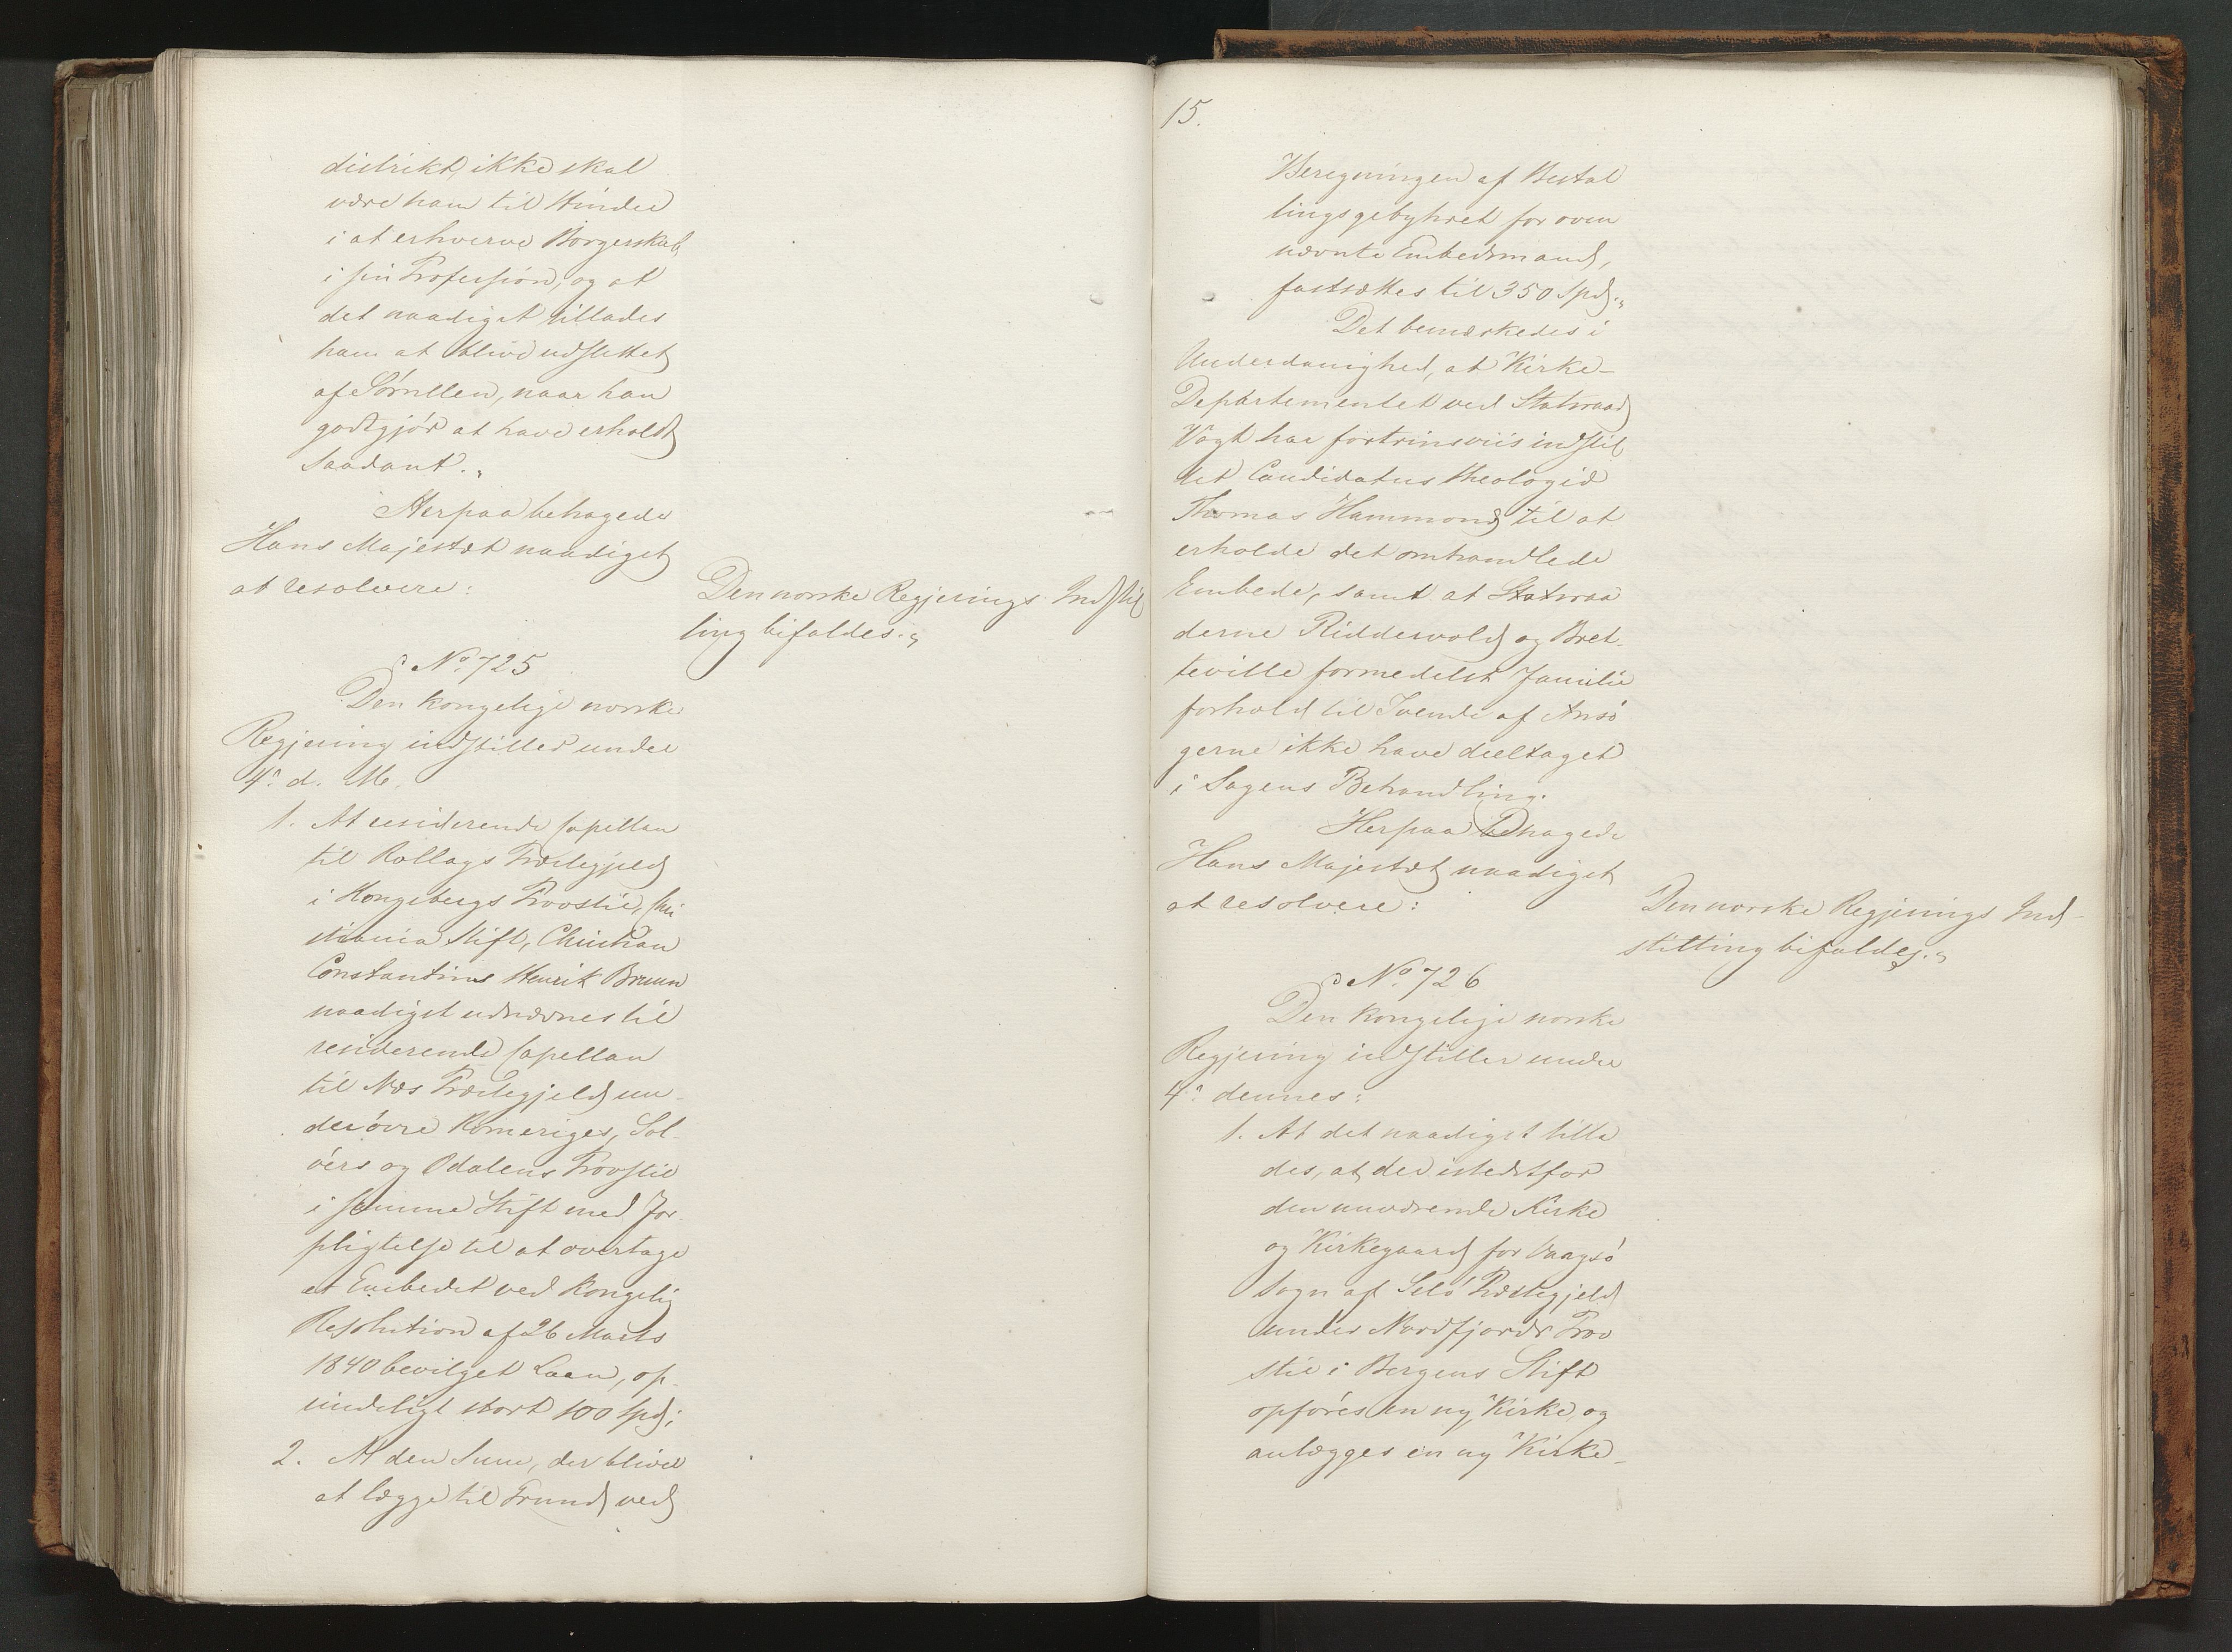 distrikt, ikke skal
være ham til Hinder
i at erhverve Borgerskab
i sin Profession, og at
det naadigst tillades
ham at blive udslettet
af Sørullen, naar han
godtgjør at have erholdt
saadant."
Herpaa behagede
Hans Majestæt naadigst
at resolvere:
Den norske Regjerings Indstil
ling bifaldes."
No. 725
Den kongelige norske
Regjering indstiller under
4. d. M.
1. At residerende Capellan
til Rollags Præstegjeld
i Kongsbergs Provstie, Chri
stiania Stift, Christian
Constantinus Henrik Bruun
naadigst udnævnes til
residerende Capellan
til Næs Præstegjeld un-
der øvre Romeriges, Sol-
øers og Odalens Provstie
i samme Stift med For-
pligtelse til at overtage
et Embedet ved kongelig
Resolution af 26 Marts
1840 bevilget Laan, op-
rindeligt stort 100 Spd;
2. At den Sum, der bliver
at lægge til Grund ved
15.
Beregningen af Bestal
lingsgebyhret for oven
nævnte Embedsmand,
fastsættes til 350 Spd."
Det bemærkedes i
Underdanighed, at Kirke-
Departementet ved Statsraad
Vogt har fortrinsviis indstil
let Candidatus theologiæ
Thomas Hammond til at
erholde det omhandlede
Embede, samt at Statsraa
derne Riddervold og Bret-
teville formedelst Familie
forhold til Tvende af Ansø
gerne ikke have deeltaget
i Sagens Behandling.
Herpaa behagede
Hans Majestæt naadigst
at resolvere:
Den norske Regjerings Ind-
stilling bifaldes."
No. 726
Den kongelige norske
Regjering indstiller under
4. dennes:
1. At det naadigst tilla
des, at der istedetfor
den nuværende Kirke
og Kirkegaard for Vaagsø
Sogn af Selø Præstegjeld
under Nordfjords Prov
stie i Bergens Stift
opføres en ny Kirke, og
anlægges en ny Kirke-